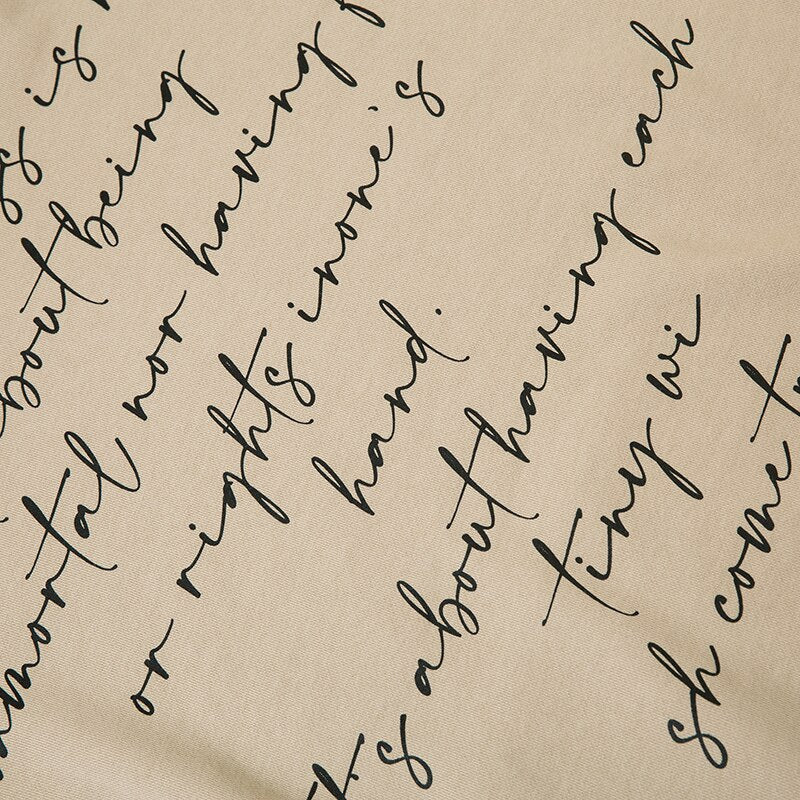 ss is
about being
immortal nor having f
or rights inone's
hand.
It's about having each
tiny wi
sh come tr